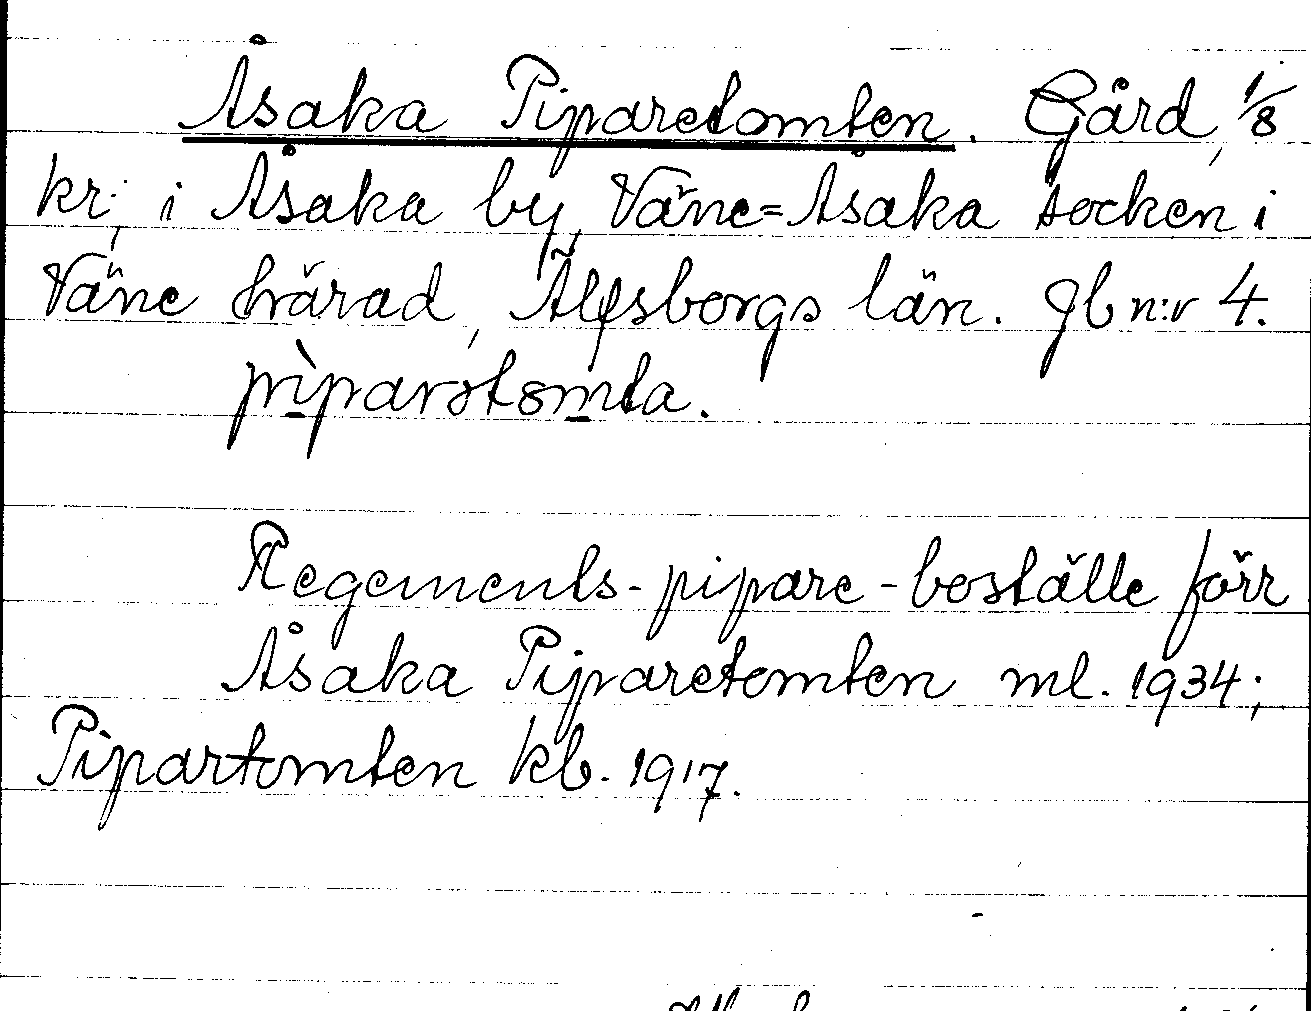 Åsaka Piparetomten. Gård, 1/8
kr., i Åsaka by, Väne=Åsaka socken i
Väne härad, Älfsborgs län. Jb n:r 4.
pìparstomta.
Regements-pipare-boställe förr
Åsaka Piparetomten ml. 1934;
Pipartomten kb. 1917.